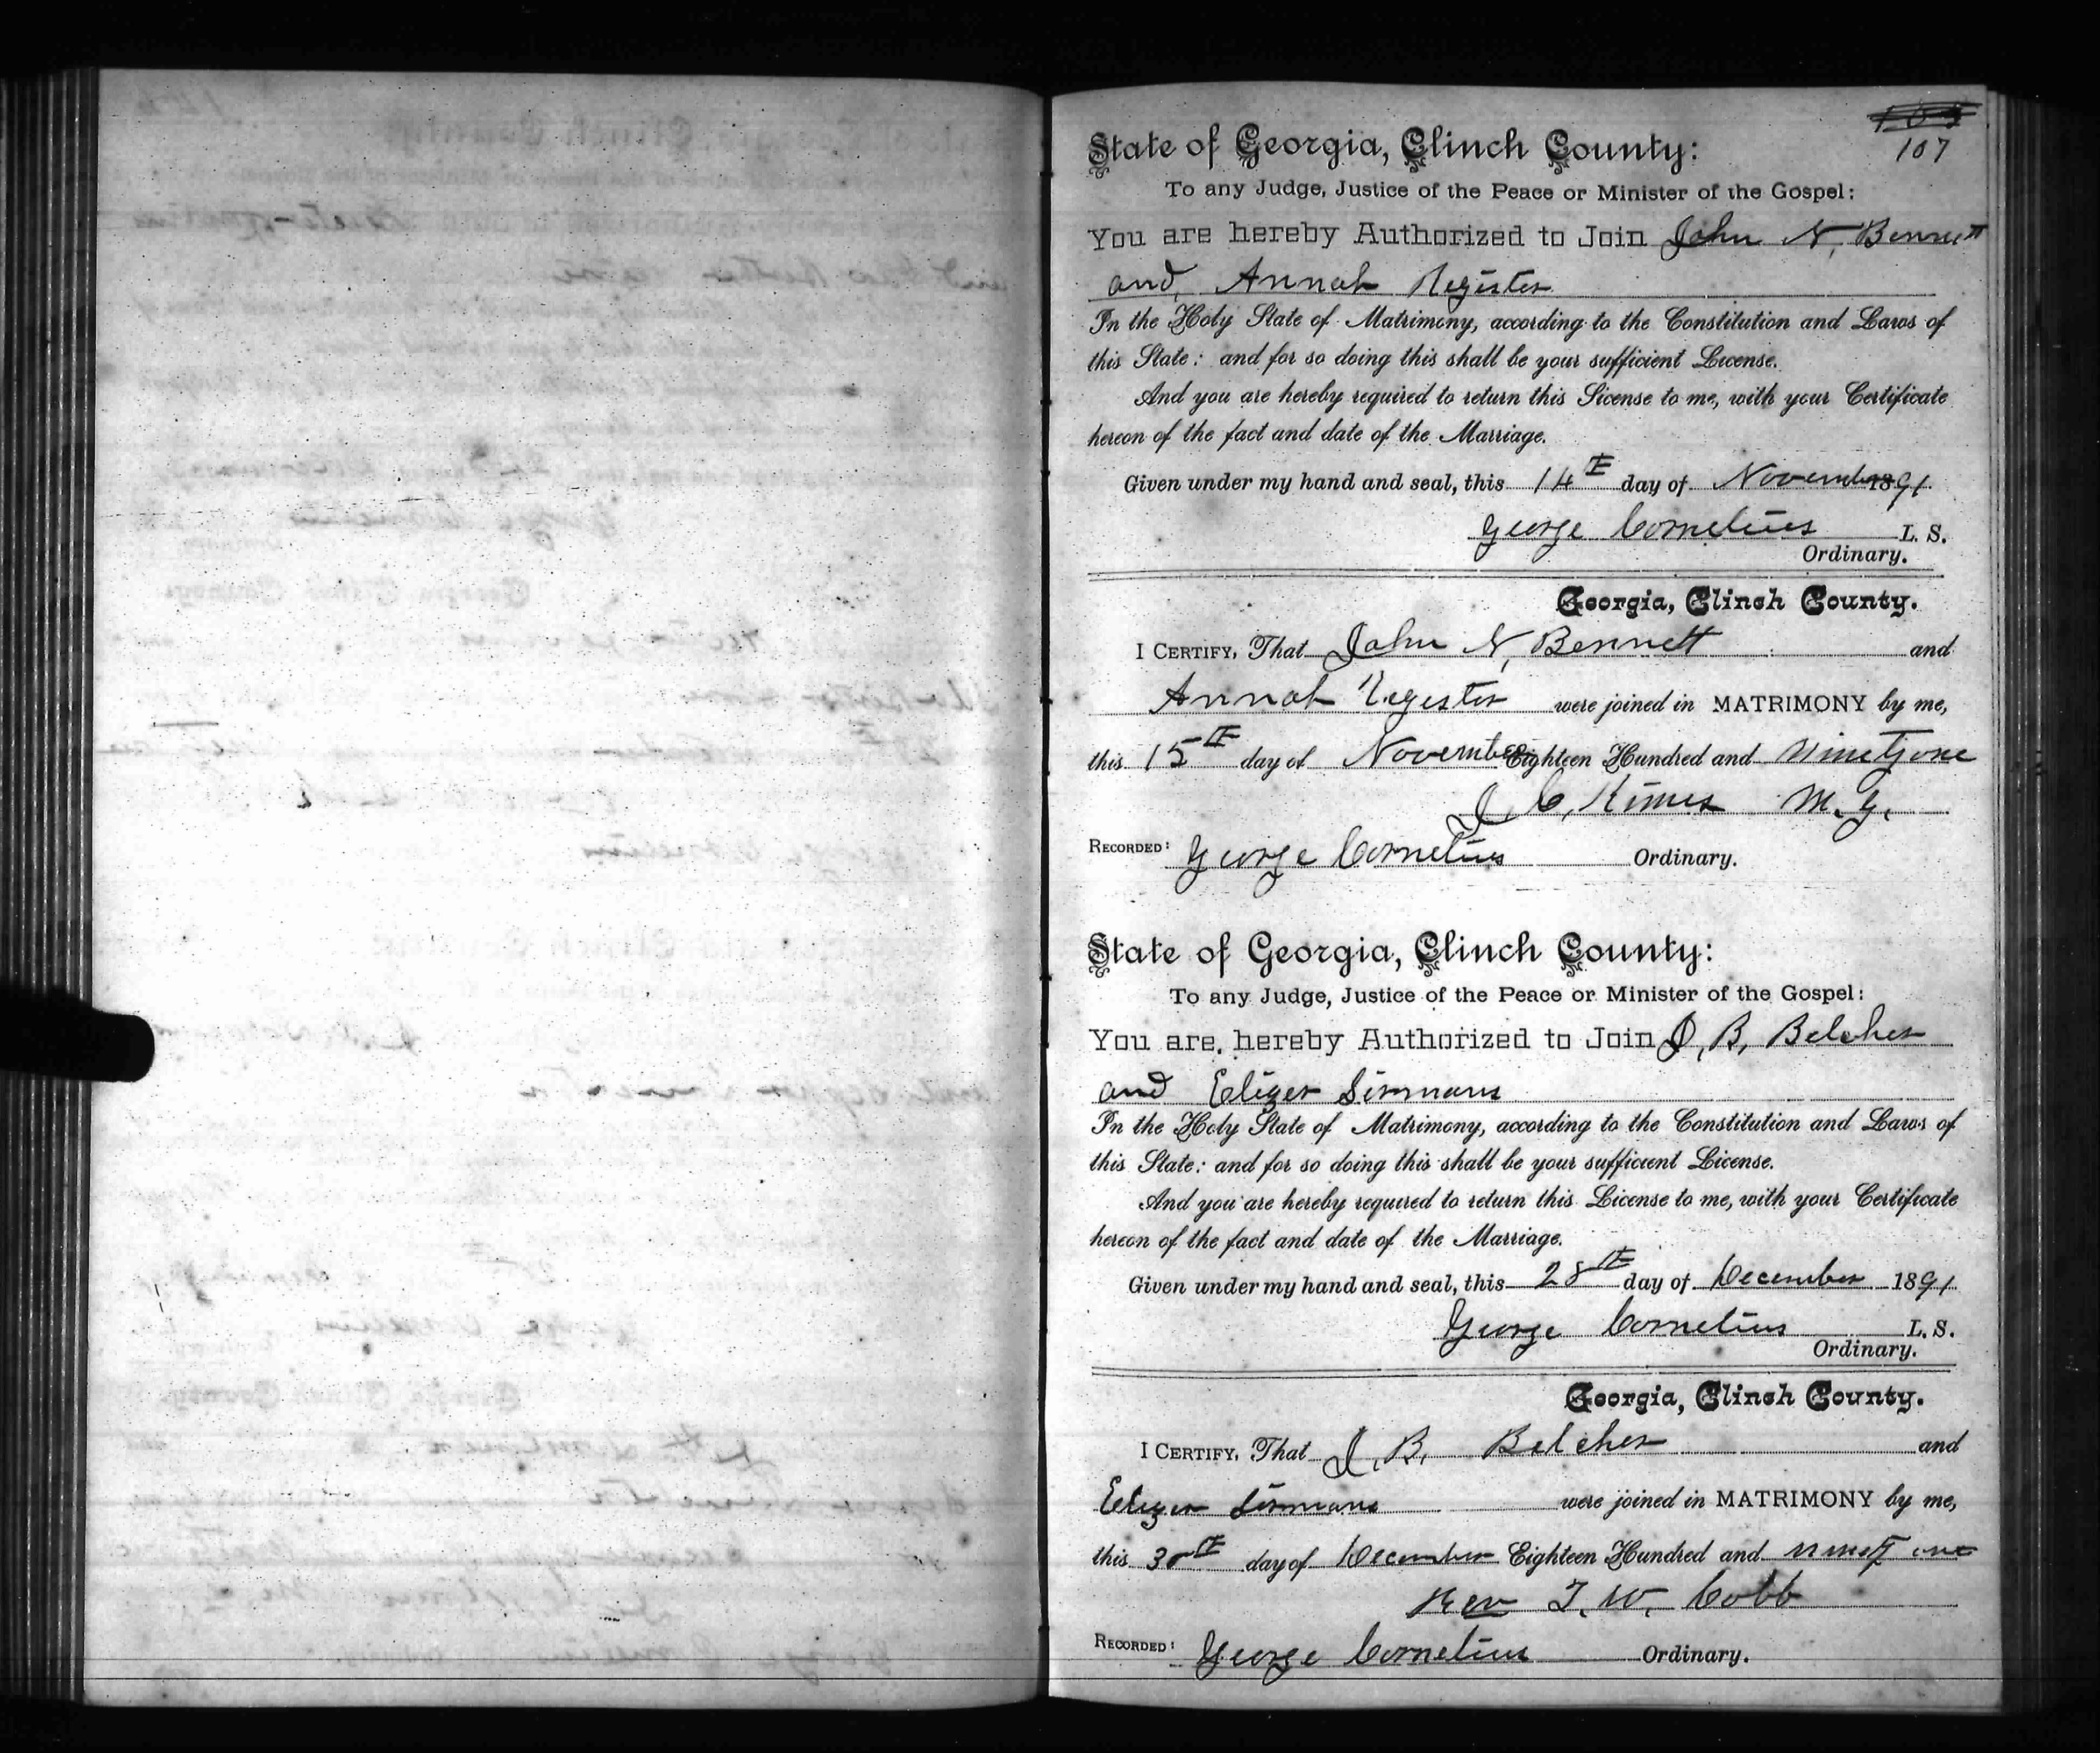 107
State of Georgia, Clinch County:
To any Judge, Justice of the Peace or Minister of the Gospel:
You are hereby Authorized to Join John N. Bennett
and Annah Register
In the Holy State of Matrimony, according to the Constitution and Laws of
this State: and for so doing this shall be your sufficient License.
And you are hereby required to return this License to me, with your Certificate
hereon of the fact and date of the Marriage.
Given under my hand and seal, this 14th day of November 1891
George Cornelius L. S.
Ordinary.
Georgia, Clinch County.
I Certify, That John N. Bennett and
Annah Register were joined in MATRIMONY by me,
this 15th day of November Eighteen Hundred and Ninetyone
J. C. Kimes M. G.
Recorded: George Cornelius Ordinary.
State of Georgia, Clinch County:
To any Judge, Justice of the Peace or Minister of the Gospel:
You are hereby Authorized to Join J. B. Belcher
and Elizer Sirmans
In the Holy State of Matrimony, according to the Constitution and Laws of
this State: and for so doing this shall be your sufficient License.
And you are hereby required to return this License to me, with your Certificate
hereon of the fact and date of the Marriage.
Given under my hand and seal, this 28th day of December 1891
George Cornelius L. S.
Ordinary.
Georgia, Clinch County.
I Certify, That J. B. Belcher and
Elizer Sirmans were joined in MATRIMONY by me,
this 30th day of December Eighteen Hundred and ninety one
Rev T. W. Cobb
Recorded: George Cornelius Ordinary.